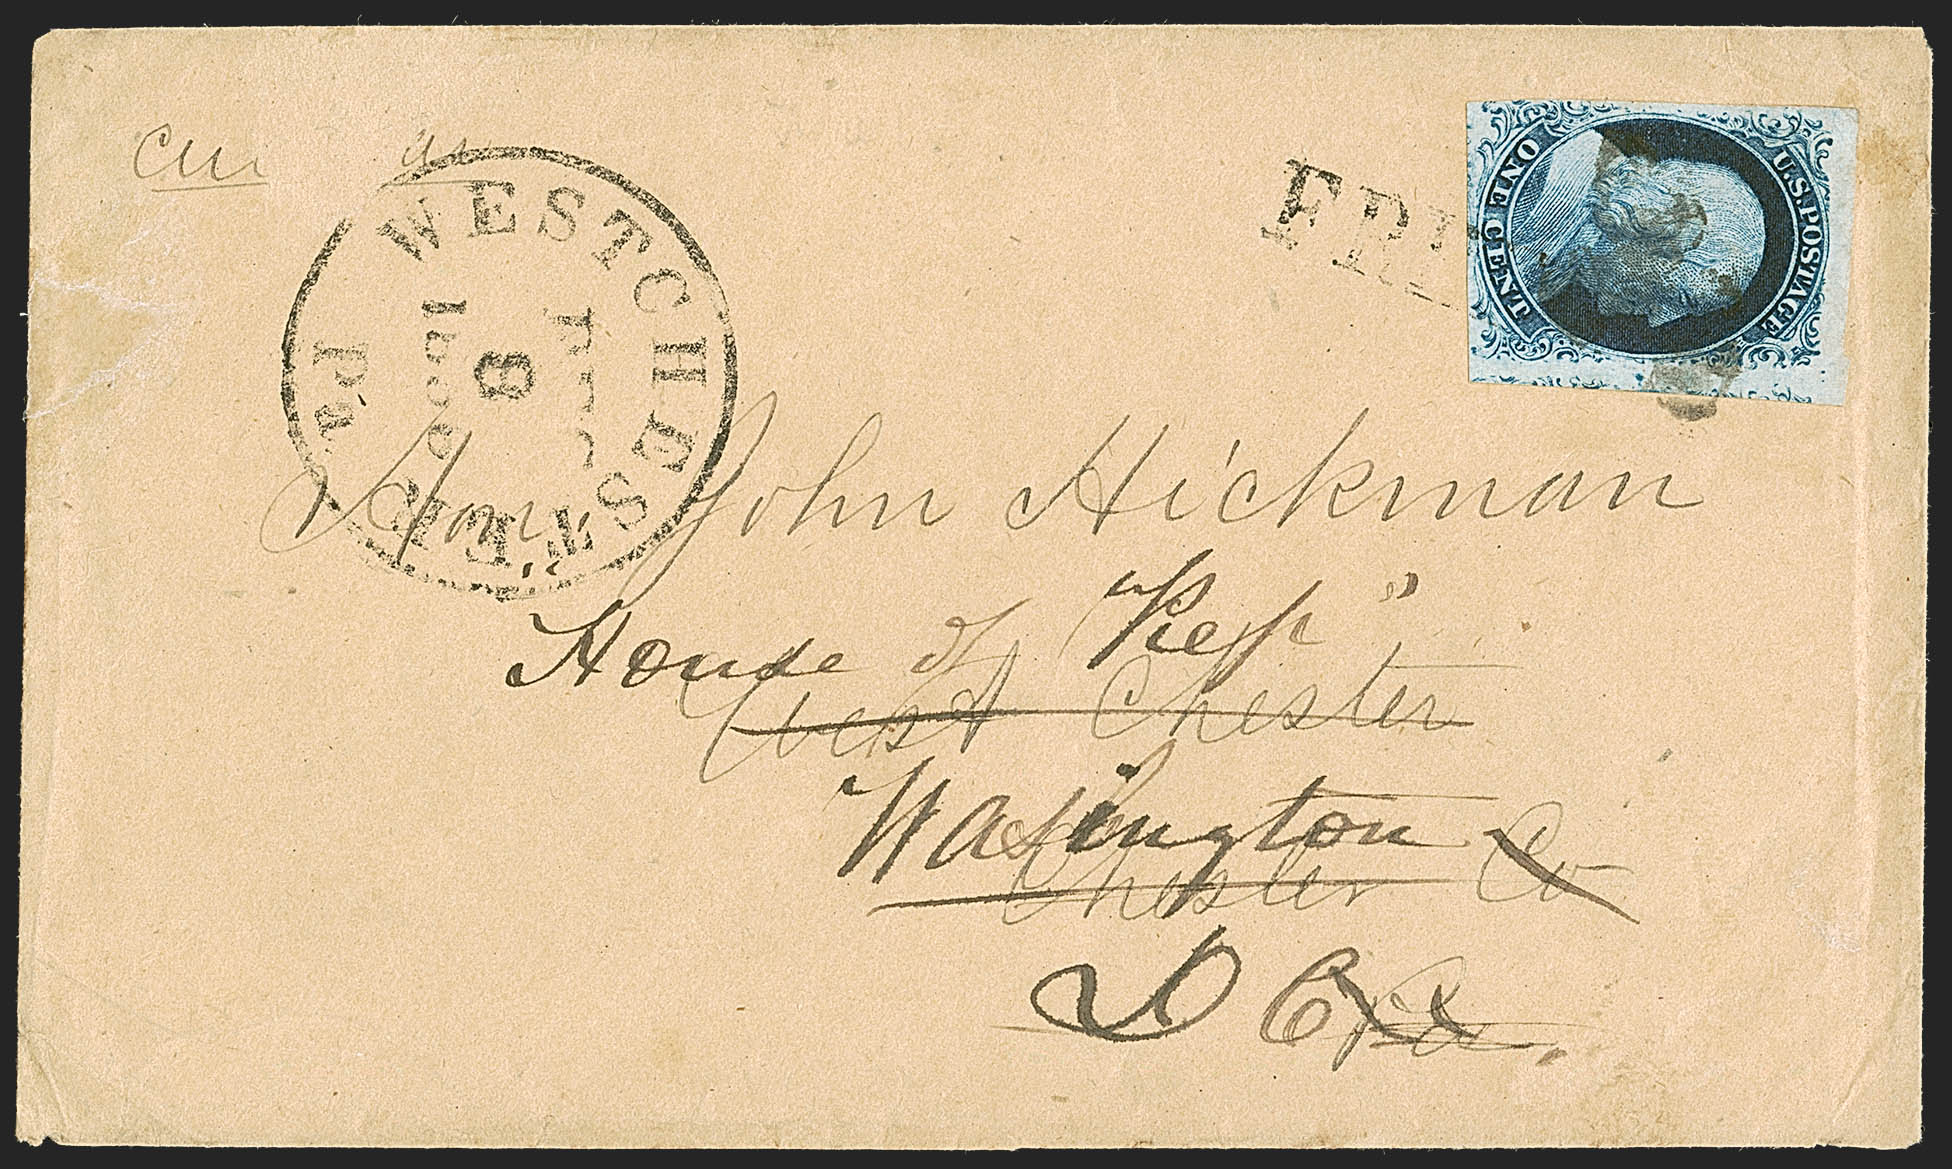 WESTCHESTER Pa.
DEC
8
FRE
U.S. POSTAGE
ONE CENT
Hon. John Hickman
House of "Rep"
West Chester
Washington
Chester Co
D C Pa.